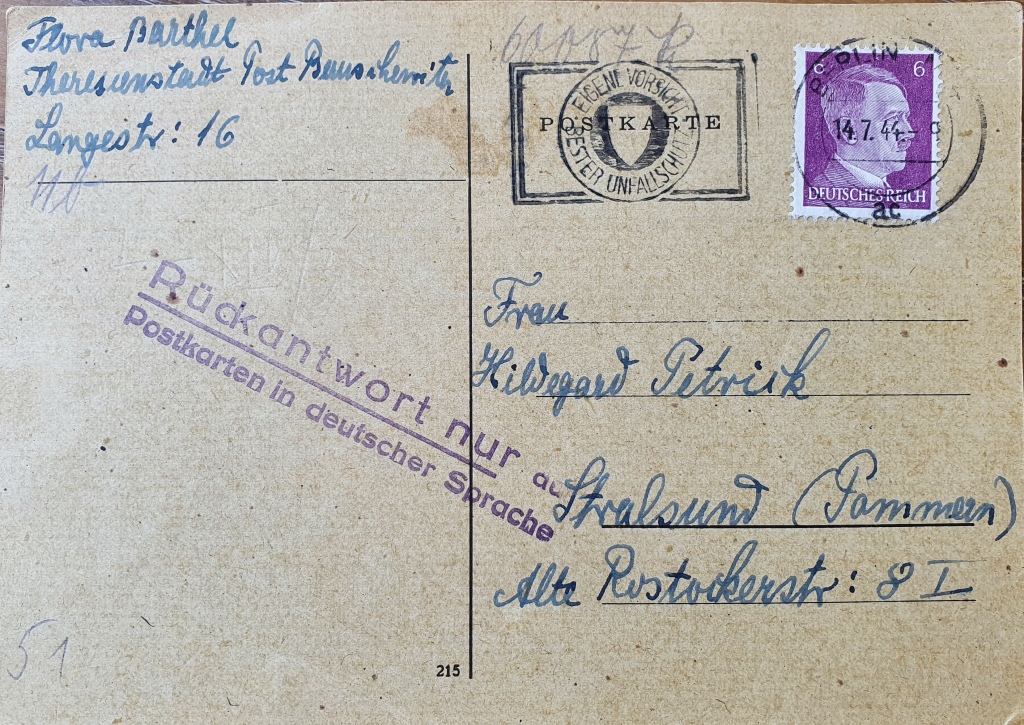 Flora Barthel
Theresienstadt Post Bauschowitz
Langestr: 16
60087
POSTKARTE
EIGENE VORSICHT
BESTER UNFALLSCHUTZ
BERLIN
14.7.44
ac
6
DEUTSCHES REICH
Rückantwort nur auf
Postkarten in deutscher Sprache
Frau
Hildegard Petrick
Stralsund (Pommern)
Alte Rostockerstr: 8 I
51
215